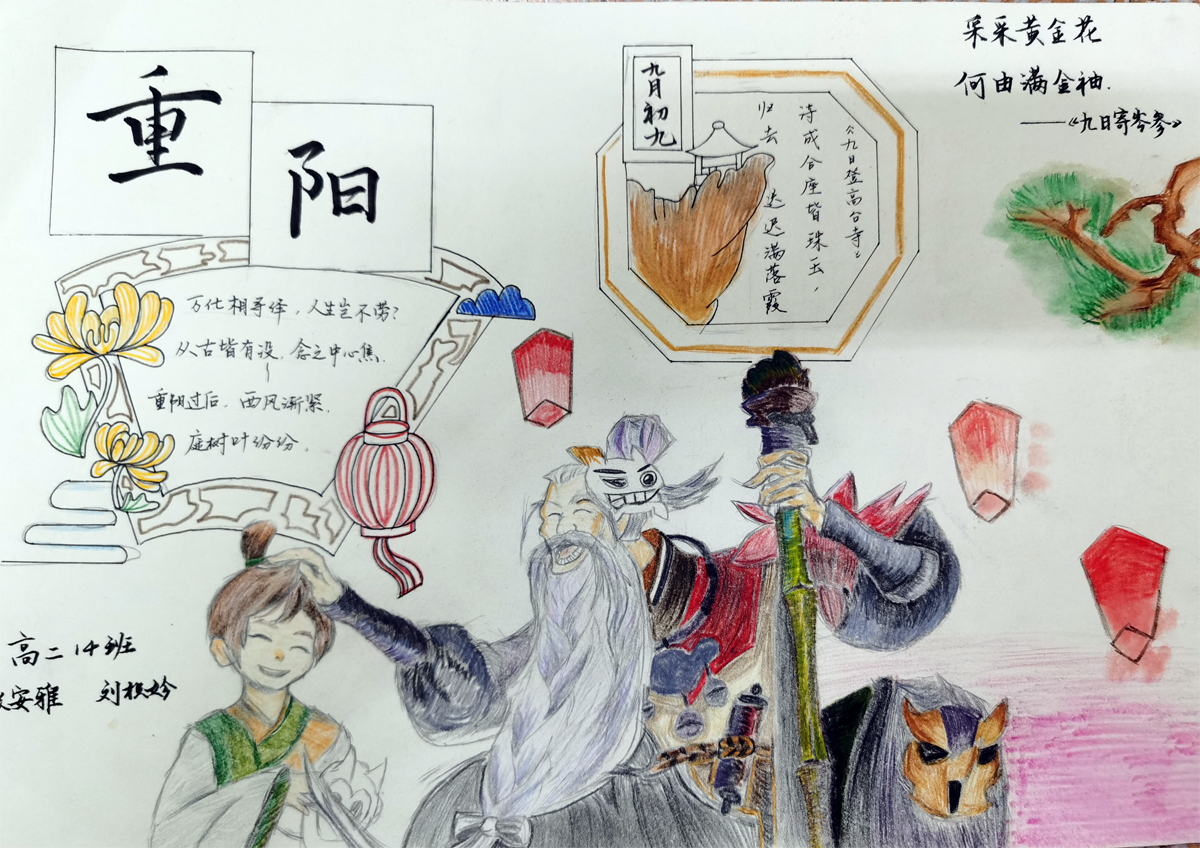 重阳
九月初九
《九日登高台寺》
诗成合座皆珠玉，
归去迟迟满落霞
采采黄金花
何由满金袖.
——《九日寄岑参》
万化相寻绎，人生岂不劳？
从古皆有没，念之中心焦.
重阳过后，西风渐紧，
庭树叶纷纷.
高二14班
安雅 刘